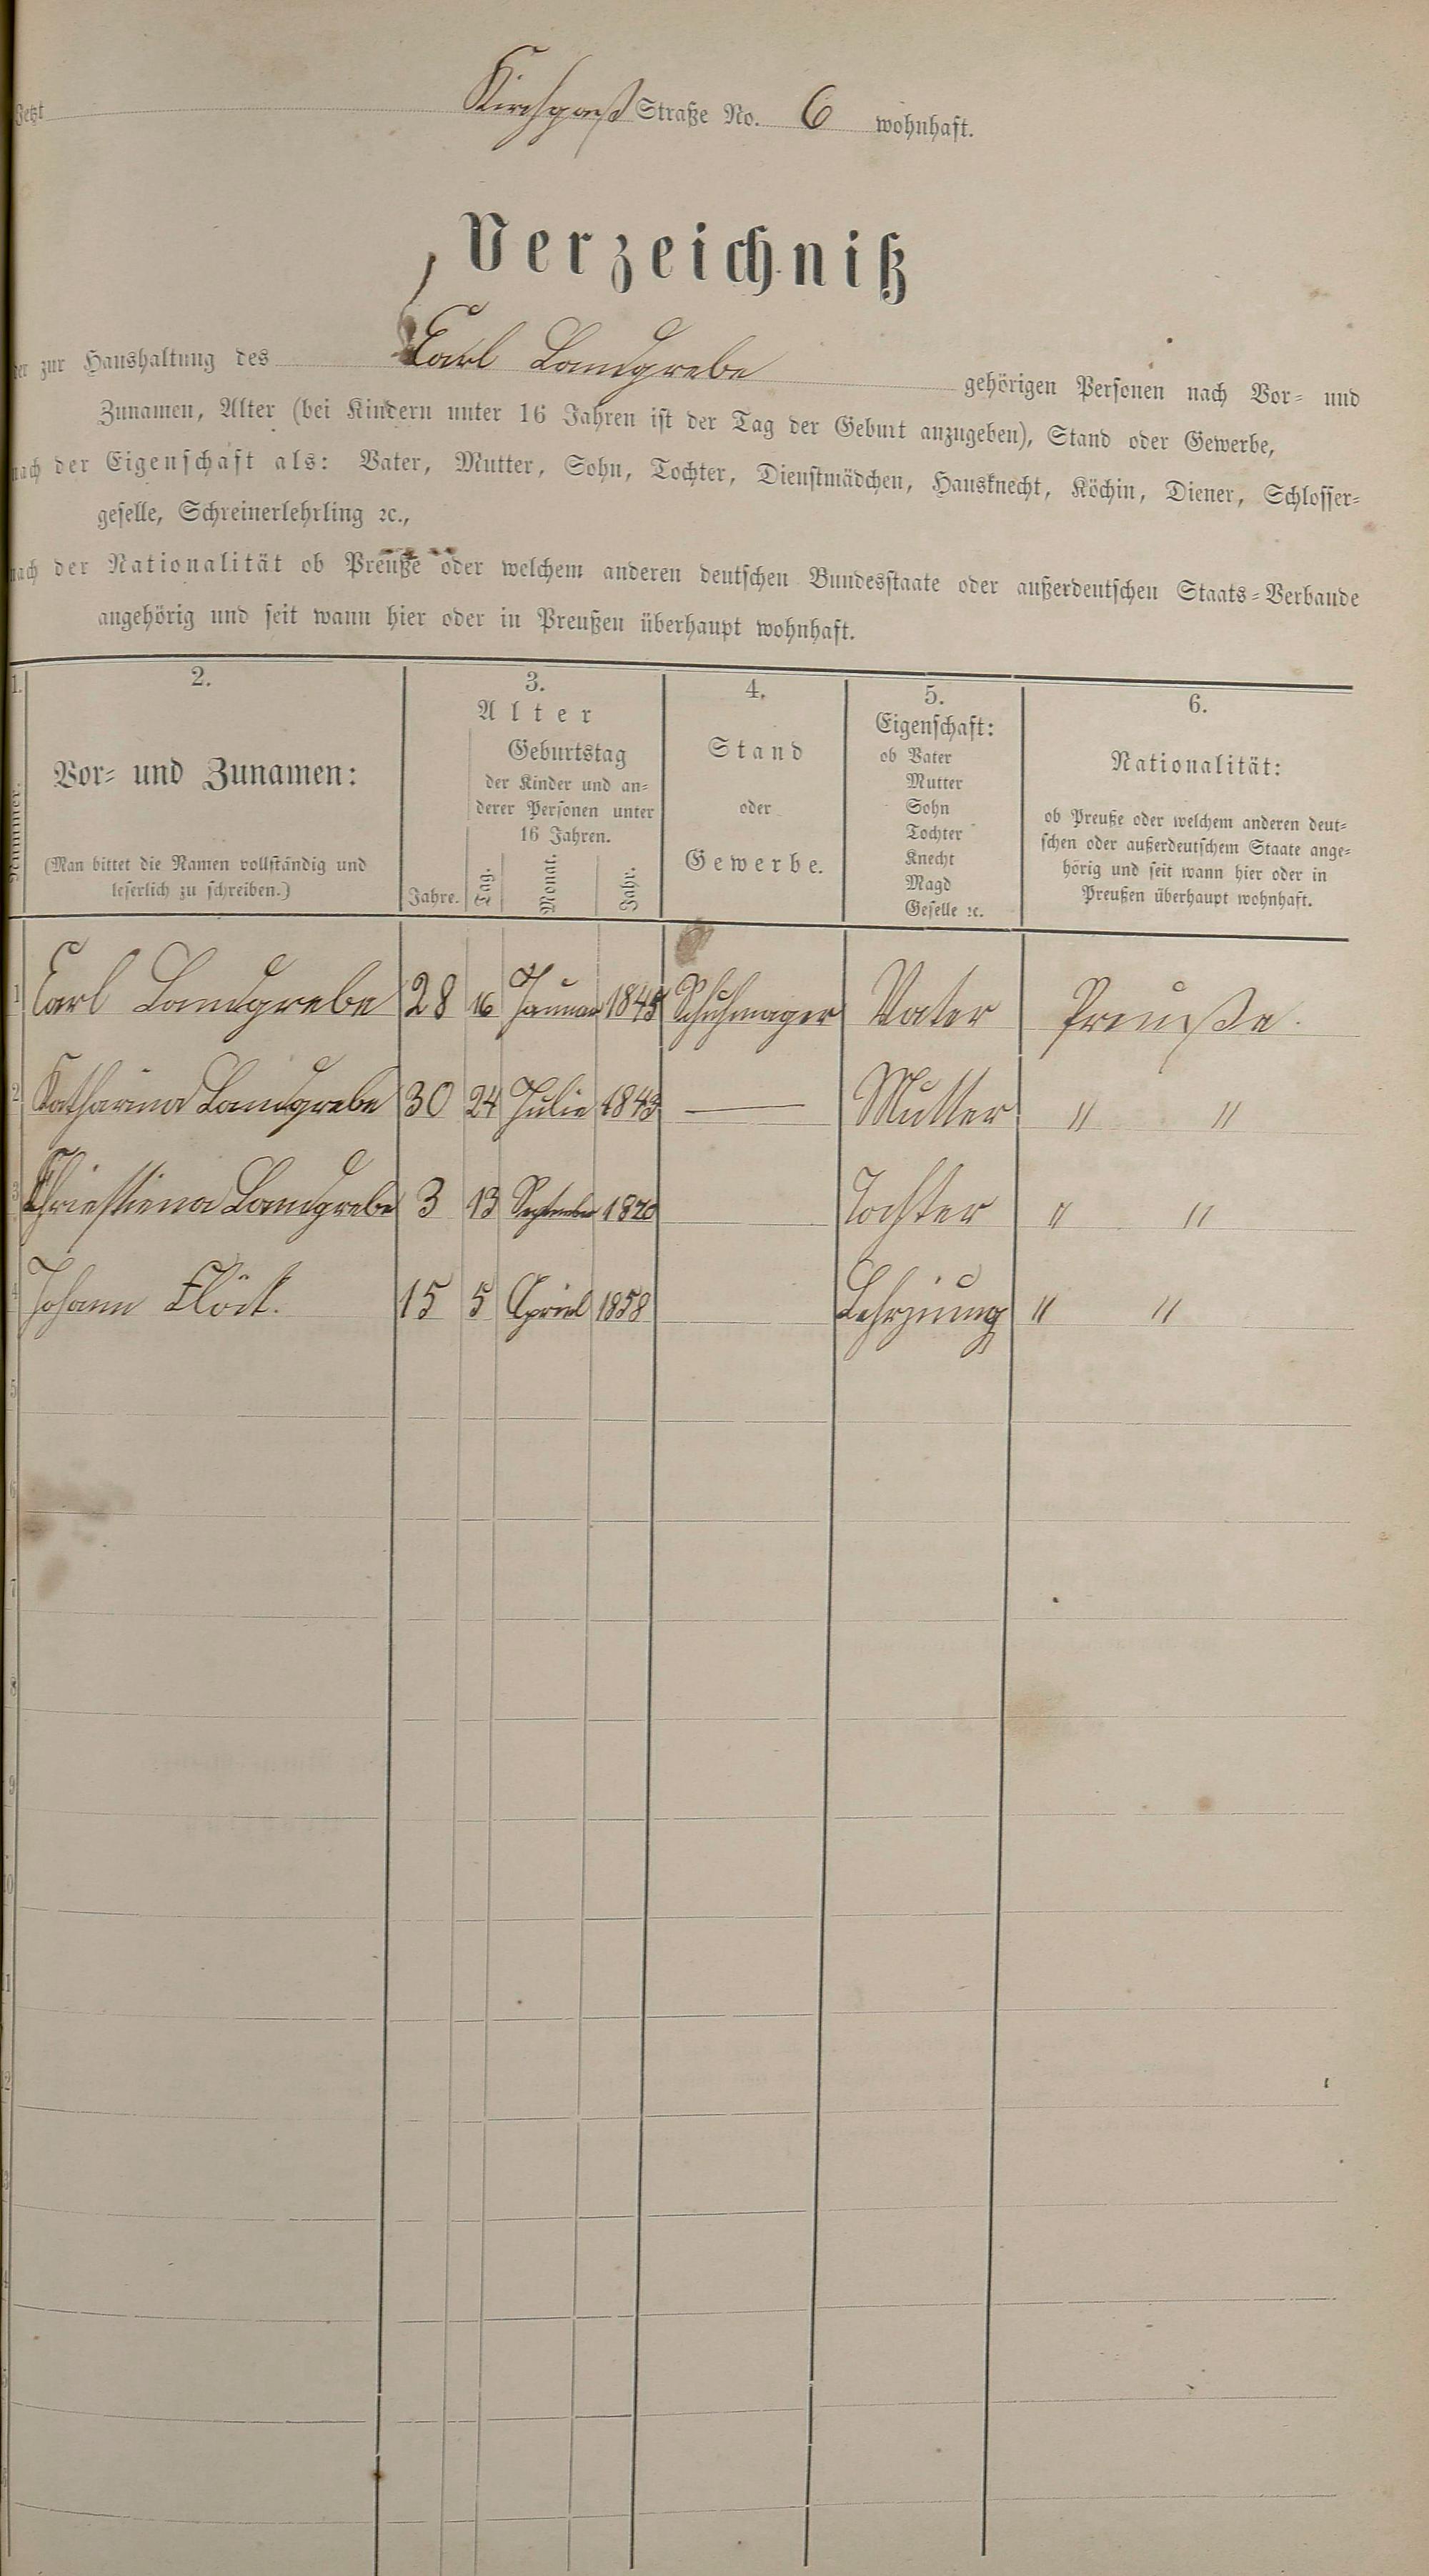 Jetzt Kirchgaß Straße No. 6 wohnhaft.
Verzeichniß
der zur Haushaltung des Carl Landgrebe gehörigen Personen nach Vor= und
Zunamen, Alter (bei Kindern unter 16 Jahren ist der Tag der Geburt anzugeben), Stand oder Gewerbe,
nach der Eigenschaft als: Vater, Mutter, Sohn, Tochter, Dienstmädchen, Hausknecht, Köchin, Diener, Schlosser=
geselle, Schreinerlehrling ꝛc.,
nach der Nationalität ob Preuße oder welchem anderen deutschen Bundesstaate oder außerdeutschen Staats=Verbande
angehörig und seit wann hier oder in Preußen überhaupt wohnhaft.
1.
Nummer.
2.
Vor= und Zunamen:
(Man bittet die Namen vollständig und
leserlich zu schreiben.)
3.
Alter
Jahre.
Geburtstag
der Kinder und an=
derer Personen unter
16 Jahren.
Tag. Monat. Jahr.
4.
Stand
oder
Gewerbe.
5.
Eigenschaft:
ob Vater
Mutter
Sohn
Tochter
Knecht
Magd
Geselle ꝛc.
6.
Nationalität:
ob Preuße oder welchem anderen deut=
schen oder außerdeutschem Staate ange=
hörig und seit wann hier oder in
Preußen überhaupt wohnhaft.
1 Carl Landgrebe 28 16 Januar 1845 Schuhmager Vater Preuße.
2 Katharina Landgrebe 30 24 Julie 1843 — Mutter " "
3 Christiena Landgrebe 3 13 September 1870 Tochter " "
4 Johann Flöck. 15 5 Apriel 1858 Lehrjung " "
5
6
7
8
9
10
11
12
13
14
15